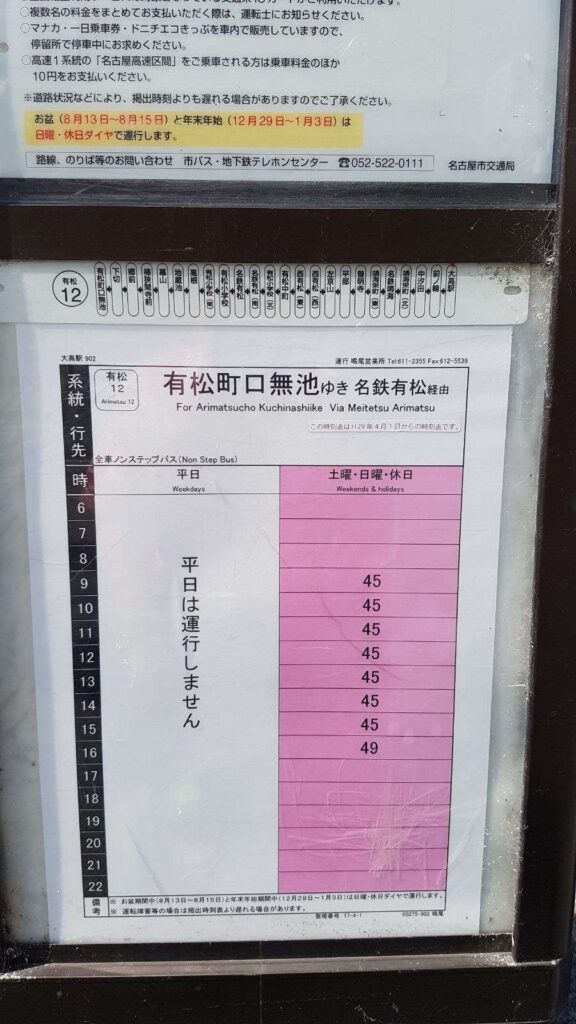 ○複数名の料金をまとめてお支払いただく際は、運転士にお知らせください。
○マナカ・一日乗車券・ドニチエコきっぷを車内で販売していますので、
停留所で停車中にお求めください。
○高速1系統の「名古屋高速区間」をご乗車される方は乗車料金のほか
10円をお支払いください。
※道路状況などにより、掲出時刻よりも遅れる場合がありますのでご了承ください。
お盆（8月13日～8月15日）と年末年始（12月29日～1月3日）は
日曜・休日ダイヤで運行します。
路線、のりば等のお問い合わせ 市バス・地下鉄テレホンセンター ☎052-522-0111
名古屋市交通局
有松
12
有松町口無池
下切
郷前
地蔵池
有松小学校
名鉄有松
有松中町
左京山
平部
大高駅
大高駅 902
運行 鳴尾営業所 Tel:611-2355 Fax:612-5539
系統・行先
有松
12
Arimatsu 12
有松町口無池ゆき 名鉄有松経由
For Arimatsucho Kuchinashiike Via Meitetsu Arimatsu
この時刻表はH29年4月1日からの時刻表です。
全車ノンステップバス(Non Step Bus)
時
平日
Weekdays
土曜・日曜・休日
Weekends & holidays
平日は運行しません
6
7
8
9 45
10 45
11 45
12 45
13 45
14 45
15 45
16 49
17
18
19
20
21
22
備考
※ お盆期間中(8月13日～8月15日)と年末年始期間中(12月29日～1月3日)は日曜・休日ダイヤで運行します。
※ 運転障害等の場合は掲出時刻表より遅れる場合があります。
整理番号 17-4-1
05075-902 鳴尾